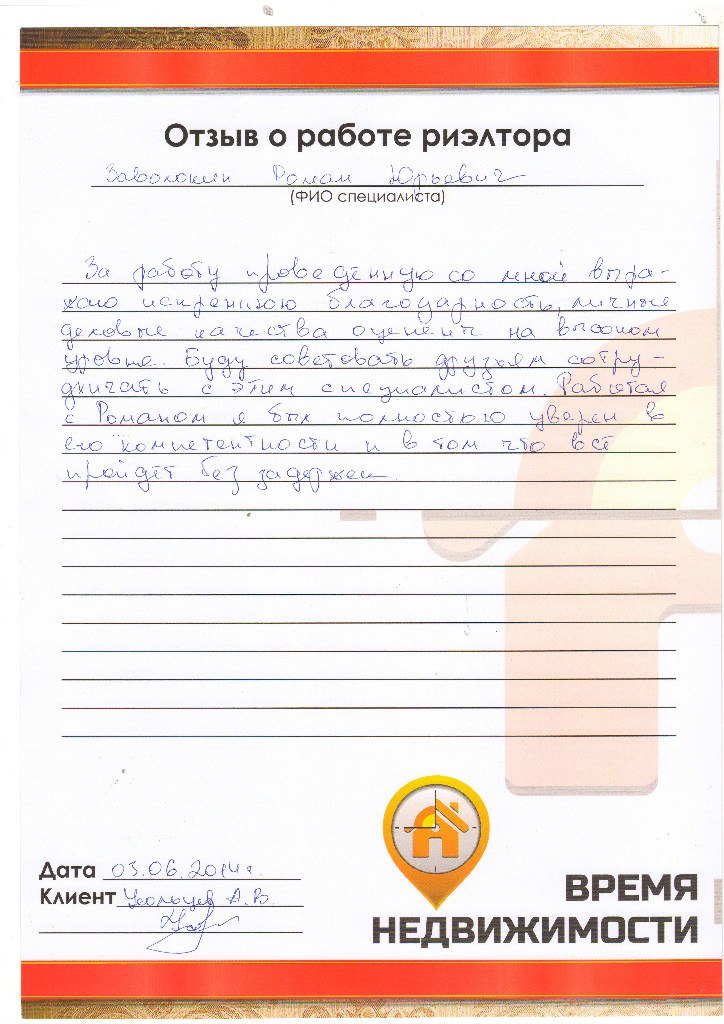 Отзыв о работе риэлтора
Заволокин Роман Юрьевич
(ФИО специалиста)
За работу проведённую со мной выра-
жаю искреннюю благодарность, личные
деловые качества оценить на высоком
уровне. Буду советовать друзьям сотру-
дничать с этим специалистом. Работая
с Романом я был полностью уверен в
его компетентности и в том что всё
пройдёт без задержек.
Дата 03.06.2014г.
Клиент А.В.
ВРЕМЯ
НЕДВИЖИМОСТИ